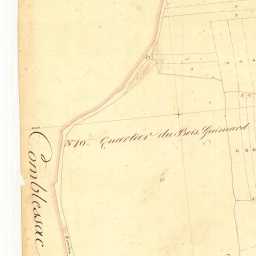 Comblessac
N.º 10. Quartier du Bois Guimard